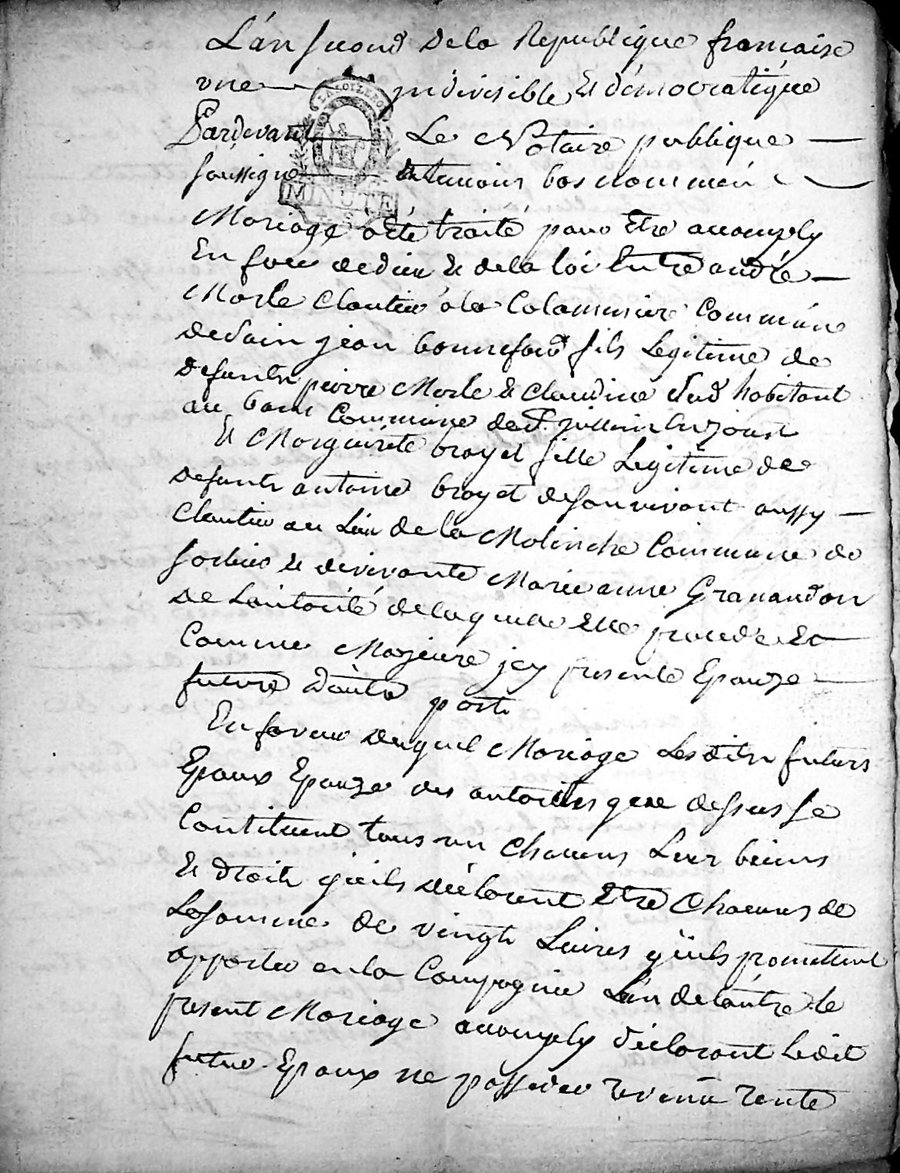 L'an second de la Republique francaise
une indivisible et démocratique
LA LOI LE ROI
Pardevant Le Notaire publique
soussigné et temoins bas nommés
MINUTE
Mariage a été traité pour être accomply
En face de dieu et de la loi Entre andré
Morle cloutier a la Calaminier Commune
de Sain jean bonnefond fils Legitime de
defunts pierre Morle et Claudine habitant
au banc Commune de St. jullien en Joust
Et Marguerite broyet fille Legitime de
defunt antoine broyet de son vivant aussy
Cloutier au Lieu de la Molinche Commune de
Sorbier et de vivante Marie anne Granandon
de Lautorité de laquelle Elle procede Et
Comme Majeure jcy presente Epouze
future d'autre part
En faveur duquel Mariage Lesdits futurs
Epoux Epouze des autorités que dessus se
Constituent tous un Chacuns Leur biens
Et droits qu'ils déclarent Etre Chacuns de
La somme de vingt Livres qu'ils promettent
apporter en la Compagnie L'un de lautre le
present Mariage accomply déclarant ledit
futur Epoux ne posseder revenu rente